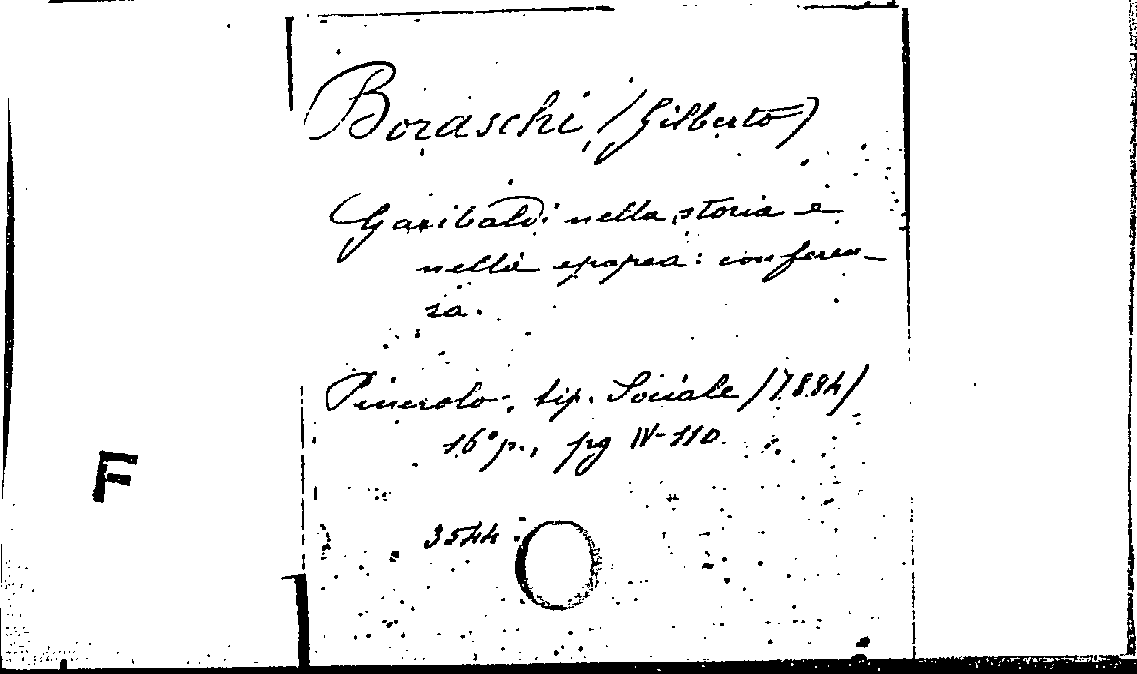 Boraschi, (Gilberto)
Garibaldi nella storia e
nella epopea: conferen-
za.
Pinerolo, tip. Sociale (1884)
16° p., pg IV-110
F
3544